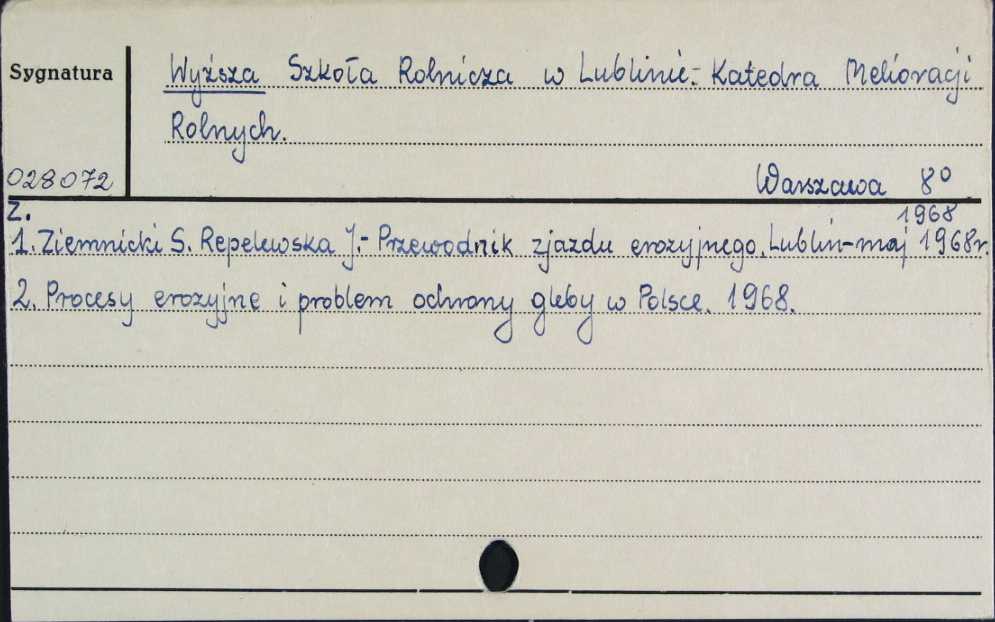 Sygnatura
Wyższa Szkoła Rolnicza w Lublinie.- Katedra Melioracji
Rolnych.
028072
Warszawa 8°
z.
1968
1. Ziemnicki S. Repelewska J.- Przewodnik zjazdu erozyjnego. Lublin-maj 1968r.
2. Procesy erozyjne i problem ochrony gleby w Polsce. 1968.